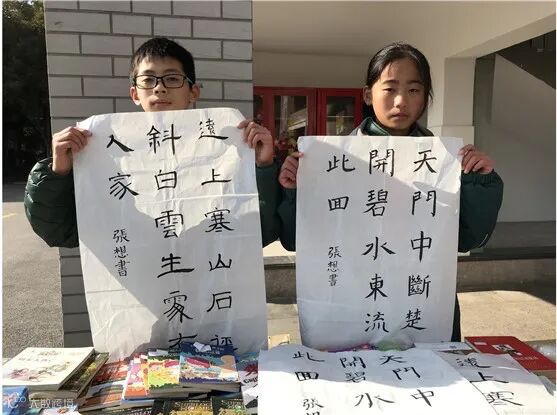 遠上寒山石徑
斜白雲生處有
人家
張想書
天門中斷楚
開碧水東流
此回
張想書
遠上寒
天門中
開碧水
此回
張想